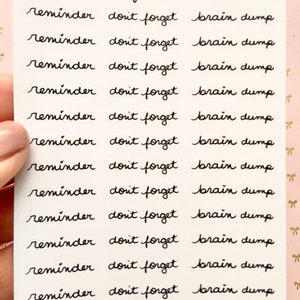 reminder don't forget brain dump
reminder don't forget brain dump
reminder don't forget brain dump
reminder don't forget brain dump
reminder don't forget brain dump
reminder don't forget brain dump
reminder don't forget brain dump
reminder don't forget brain dump
reminder don't forget brain dump
reminder don't forget brain dump
reminder don't forget brain dump